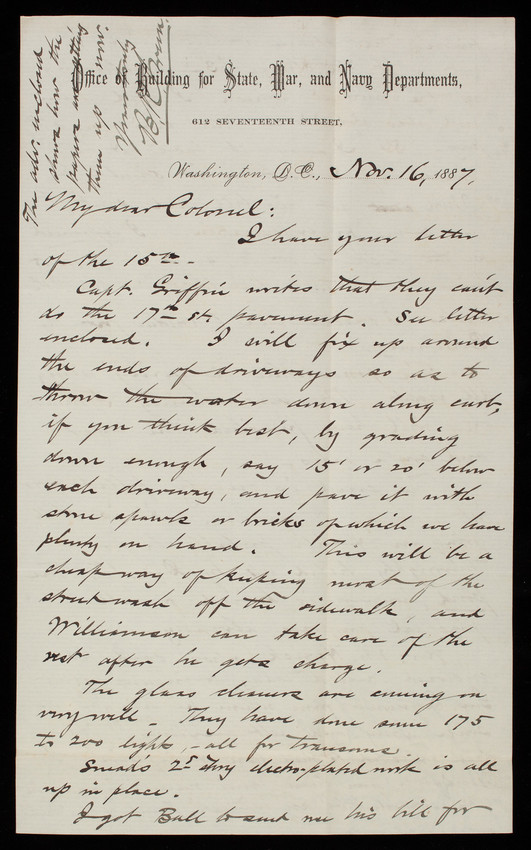 Office of Building for State, War, and Navy Departments,
612 SEVENTEENTH STREET.
Washington, D.C., Nov. 16, 1887.
My dear Colonel:
I have your letter
of the 15th.-
Capt. Griffin writes that they can't
do the 17th st. pavement. See letter
enclosed. I will fix up around
the ends of driveways so as to
throw the water down along curb,
if you think best, by grading
down enough, say 15' or 20' below
each driveway, and pave it with
stone spawls or bricks of which we have
plenty on hand. This will be a
cheap way of keeping most of the
street wash off the sidewalk, and
Williamson can take care of the
rest after he gets charge.
The glass cleaners are coming on
very well. They have done some 175
to 200 lights, - all for transoms.
Snead's 2d story electro-plated work is all
up in place.
I got Ball to send me his bill for
The adv. enclosed
shows how the
papers are getting
them up now.
Yours truly